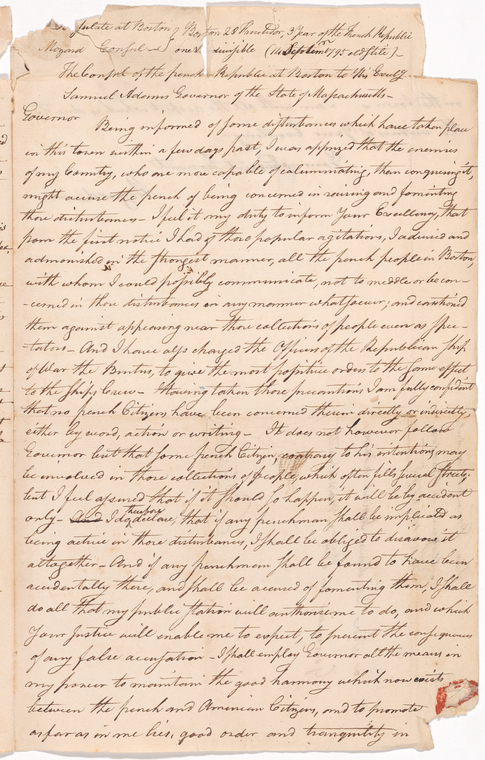 sulate at Boston } Boston 28 Fructidor, 3 Year of the French Republic
Mozard Consul one & indivisible (14 September 1795 old stile)
The Consul of the french Republic at Boston to His Excelly
Samuel Adams Governor of the State of Massachusetts
Governor
Being informed of some disturbances which have taken place
in this town within a few days past, I was apprized that the enemies
of my Country, who are more capable of calumniating, than conquering it,
might accuse the french of being concerned in raising and fomenting
those disturbances - I feel it my duty to inform Your Excellency, that
from the first notice I had of those popular agitations, I advised and
admonished in the strongest manner, all the french people in Boston,
with whom I could possibly communicate, not to meddle or be con-
-cerned in those disturbances in any manner whatsoever; and cautioned
them against appearing near those collections of people even as Spec-
tators - And I have also charged the Officers of the Republican Ship
of War the Brutus, to give the most positive orders to the same effect
to the Ships Crew - Having taken those precautions I am fully confident
that no french Citizens have been concerned therein directly or indirectly
either by word, action or writing - It does not however follow
Governor but that some french Citizen, contrary to his intentions may
be involved in those collections of People, which often fills several Streets;
but I feel assured that if it should so happen, it will be by accident
only - And I do therefore declare, that if any frenchman shall be implicated as
being active in those disturbances, I shall be obliged to disavow it
altogether - And if any frenchmen shall be found to have been
accidentally there, and shall be accused of fomenting them, I shall
do all that my public station will authorise me to do, and which
Your Justice will enable me to expect, to prevent the consequences
of any false accusation - I shall employ Governor all the means in
my power to maintain the good harmony which now exists
between the french and American Citizens, and to promote
as far as in me lies, good order and tranquility in